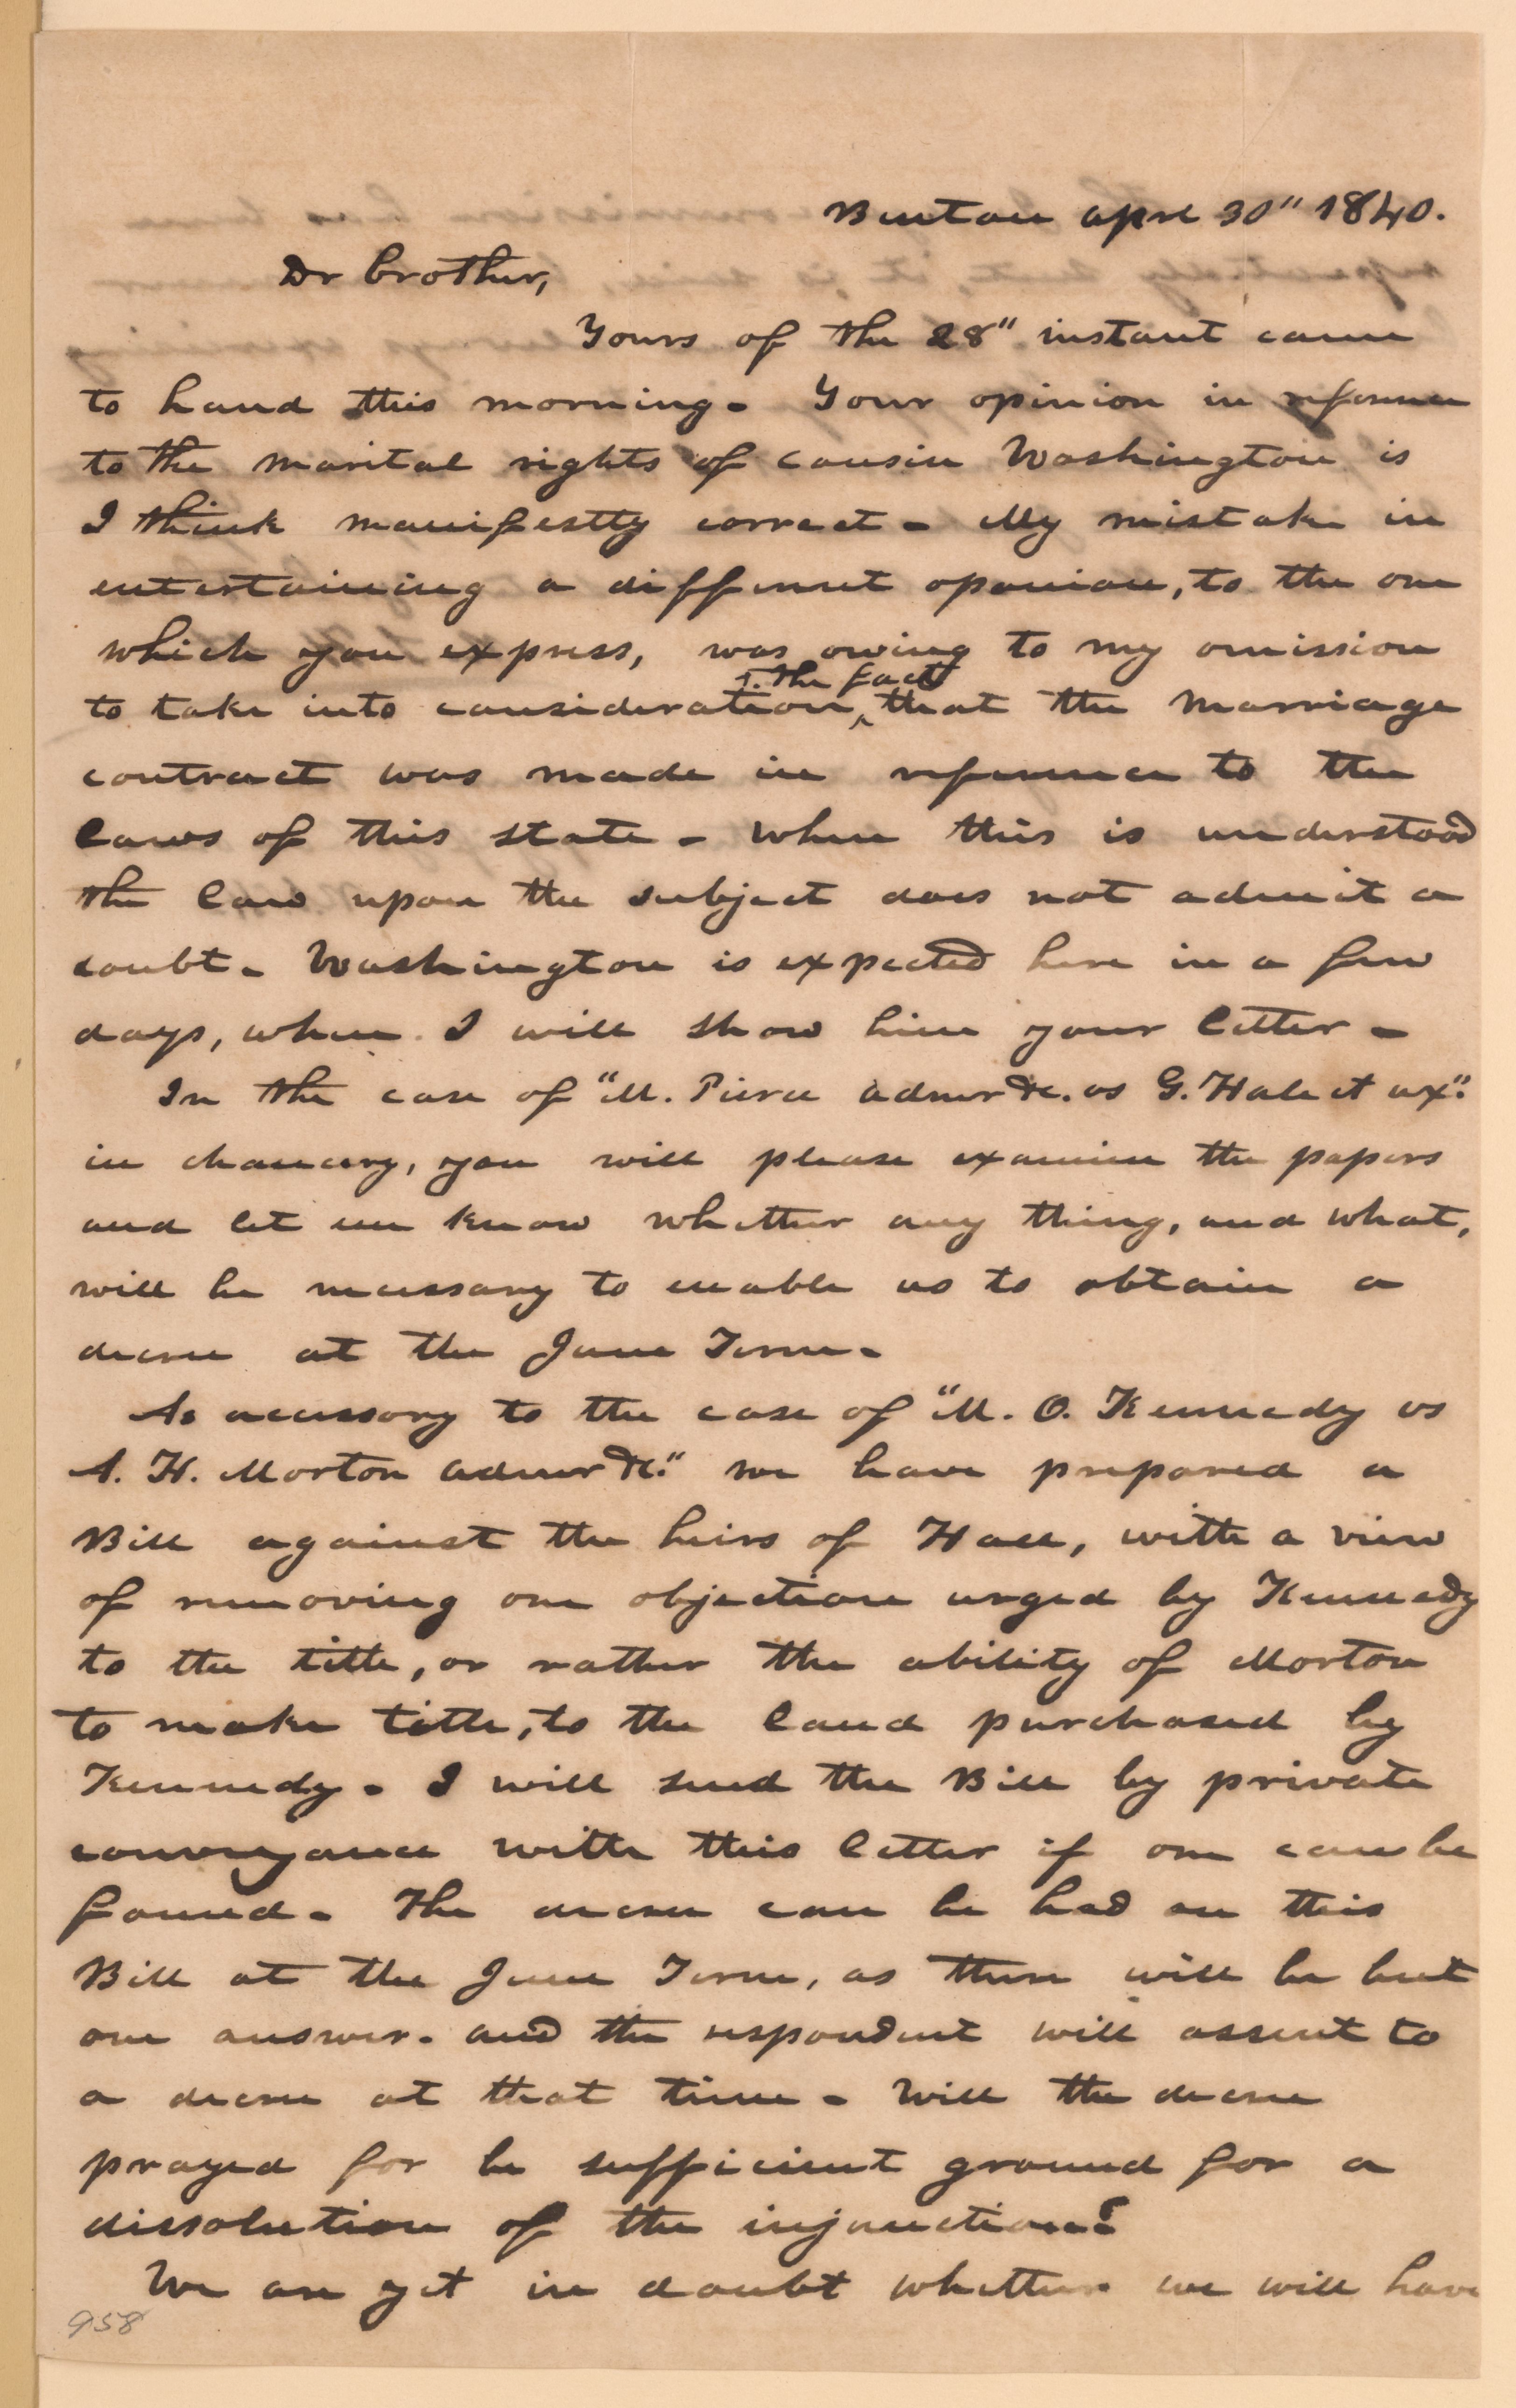 Benton apr 30" 1840.
Dr brother,
Yours of the 28" instant came
to hand this morning. Your opinion in reference
to the marital rights of cousin Washington is
I think manifestly correct. My mistake in
entertaining a different oponion, to the one
which you express, was owing to my omission
the fact
to take into consideration, that the marriage
contract was made in reference to the
laws of this state. When this is understood
the law upon the subject does not admit a
doubt. Washington is expected here in a few
days, when I will show him your letter.
In the case of "M. Pierce admr &c. vs G. Hale et ux."
in chancery, you will please examine the papers
and let me know whether any thing, and what,
will be necessary to enable us to obtain a
decree at the June Term.
As accessory to the case of "M. O. Kennedy vs
A. H. Morton admr &c." we have prepared a
Bill against the heirs of Hall, with a view
of removing one objection urged by Kennedy
to the title, or rather the ability of Morton
to make title, to the land purchased by
Kennedy. I will send the Bill by private
conveyance with this letter if one can be
found. The decree can be had on this
Bill at the June Term, as there will be but
one answer. and the respondent will assent to
a decree at that time. Will the decree
prayed for be sufficient ground for a
dissolution of the injunction?
We are yet in doubt whether we will have
958